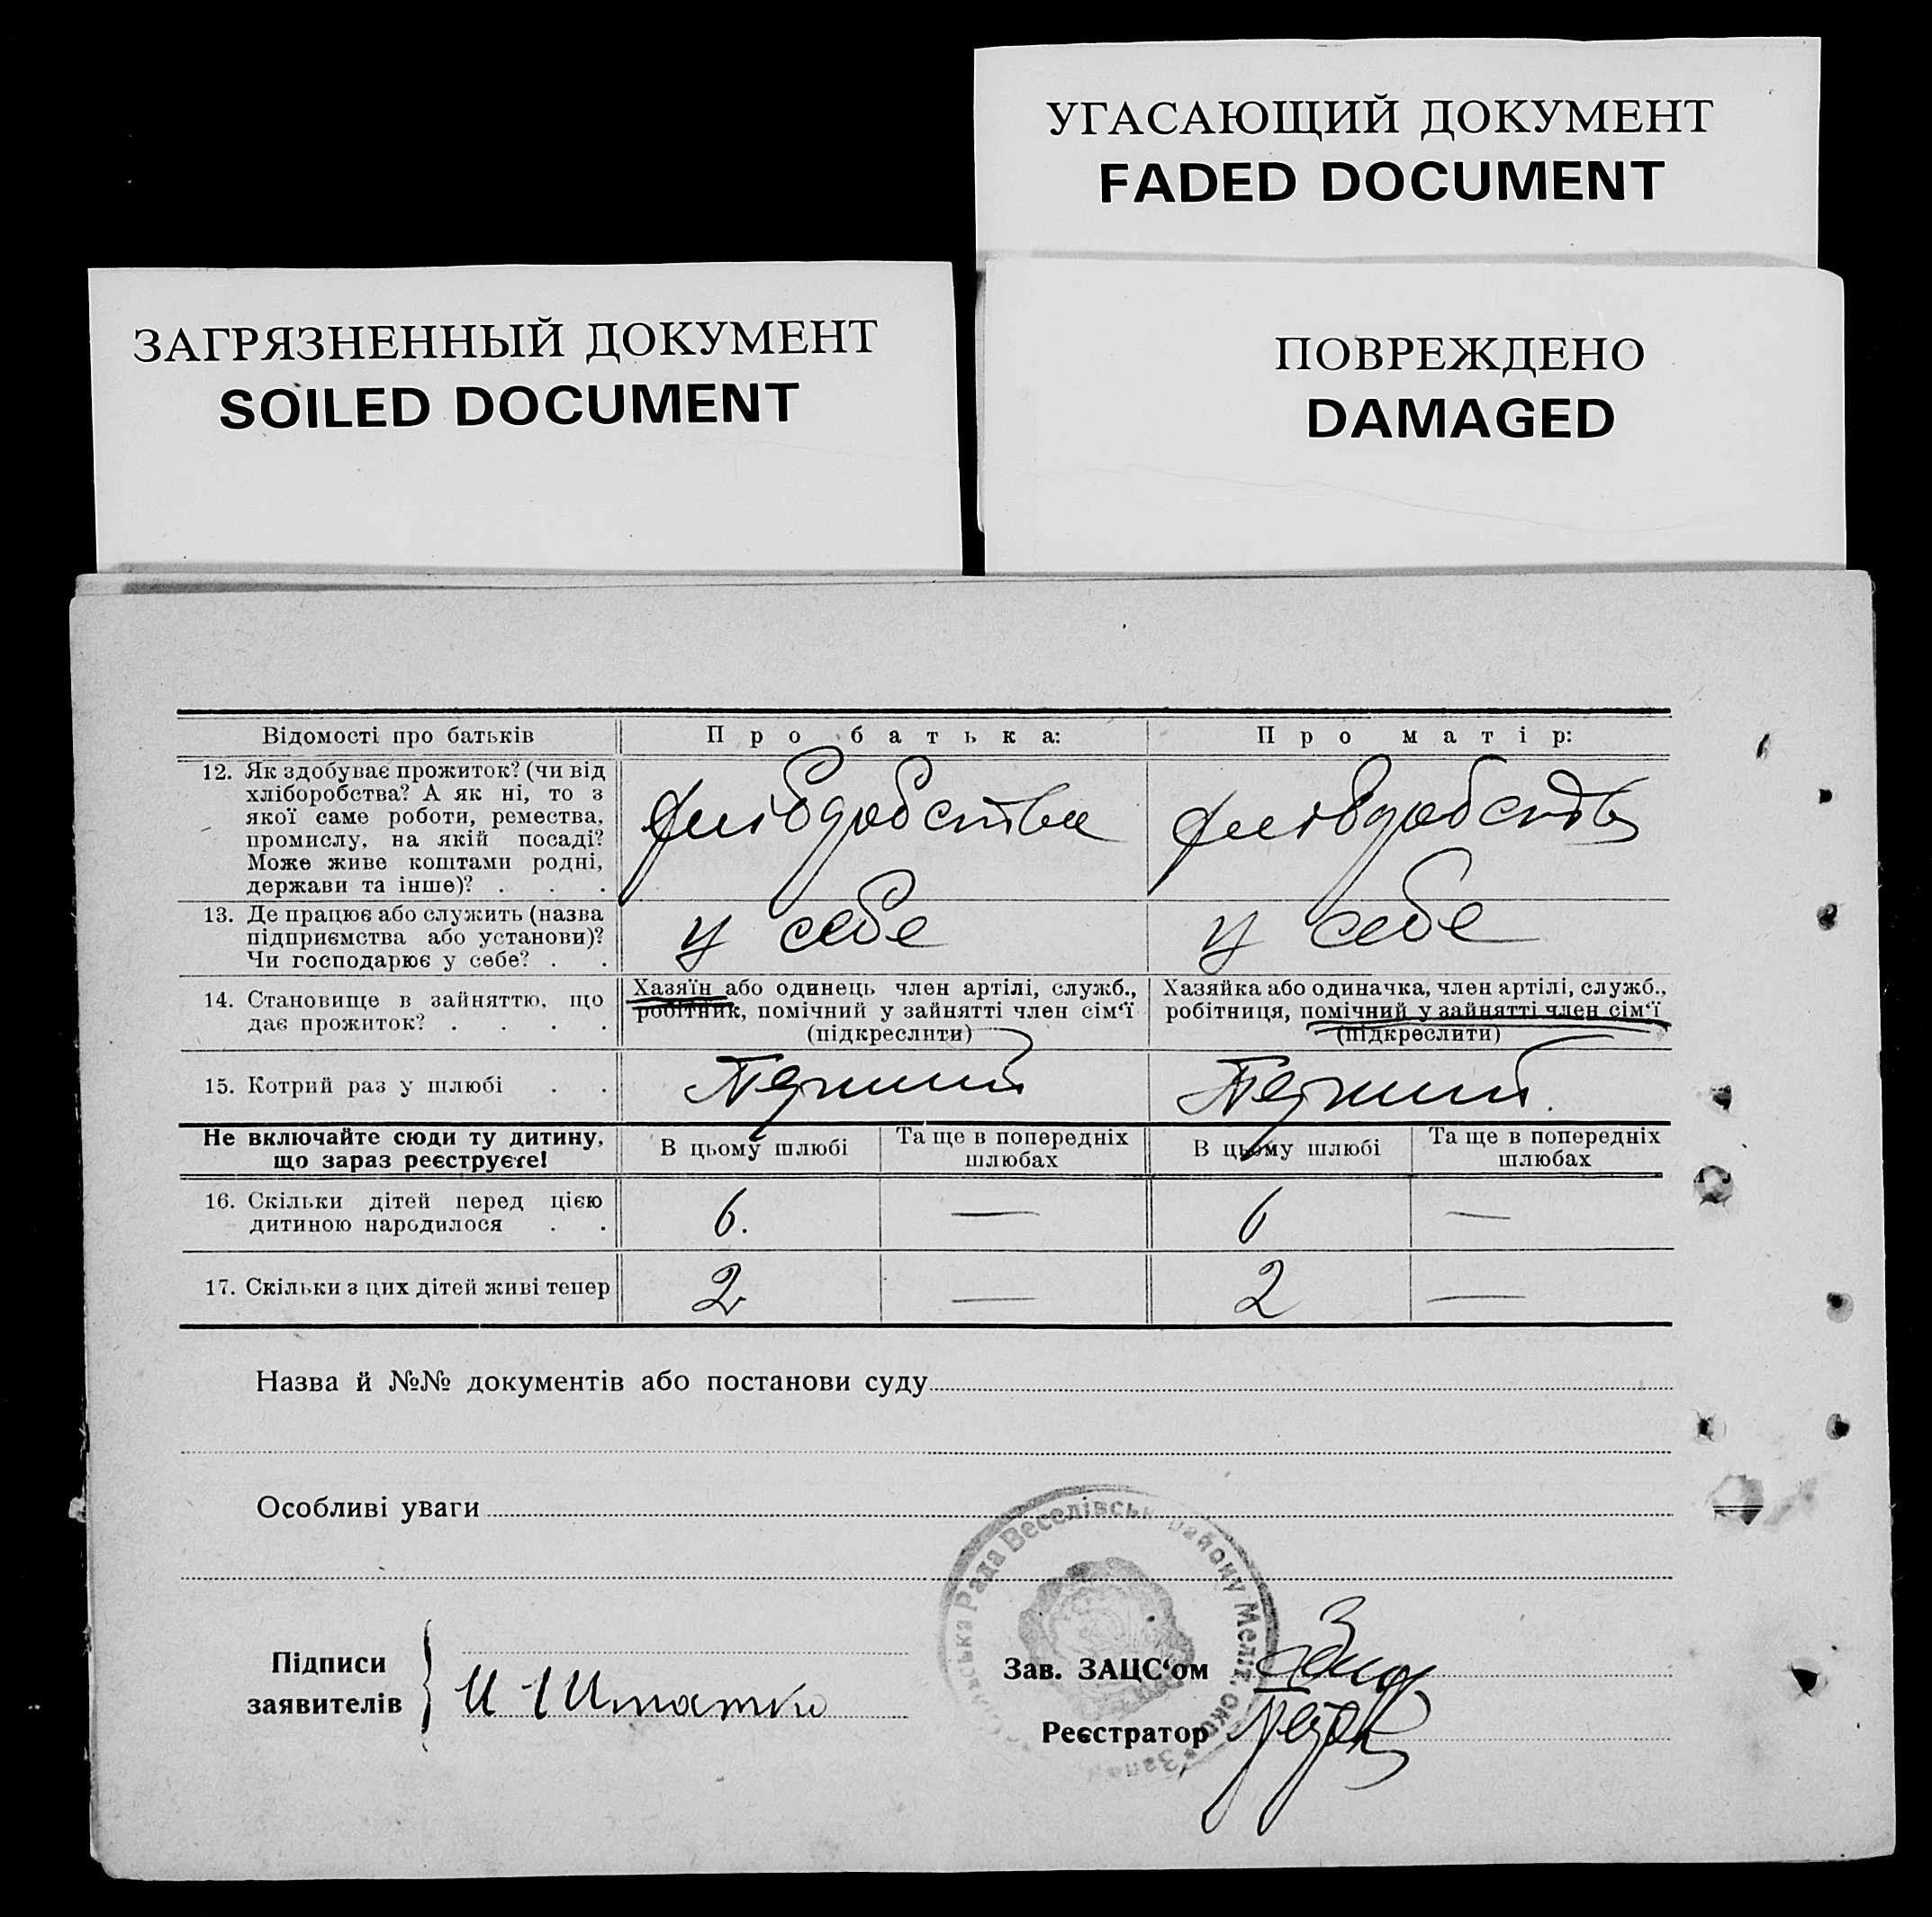 УГАСАЮЩИЙ ДОКУМЕНТ
FADED DOCUMENT
ЗАГРЯЗНЕННЫЙ ДОКУМЕНТ
SOILED DOCUMENT
ПОВРЕЖДЕНО
DAMAGED
Відомості про батьків
Про батька:
Про матір:
12. Як здобуває прожиток? (чи від
хліборобства? А як ні, то з
якої саме роботи, ремества,
промислу, на якій посаді?
Може живе коштами родні,
держави та інше)? . . .
13. Де працює або служить (назва
підприємства або установи)?
Чи господарює у себе? . .
у себе
у себе
14. Становище в зайняттю, що
дає прожиток? . . . .
Хазяїн або одинець член артілі, служб.,
робітник, помічний у зайнятті член сім'ї
(підкреслити)
Хазяйка або одиначка, член артілі, служб.,
робітниця, помічний у зайнятті член сім'ї
(підкреслити)
15. Котрий раз у шлюбі . .
Перший
Перший.
Не включайте сюди ту дитину,
що зараз реєструєте!
В цьому шлюбі
Та ще в попередніх
шлюбах
В цьому шлюбі
Та ще в попередніх
шлюбах
16. Скільки дітей перед цією
дитиною народилося . .
6. — 6 —
17. Скільки з цих дітей живі тепер
2 — 2 —
Назва й №№ документів або постанови суду
Особливі уваги
Рада Веселівськ району Меліт. окр
Підписи
заявителів
Зав. ЗАЦС'ом
Реєстратор